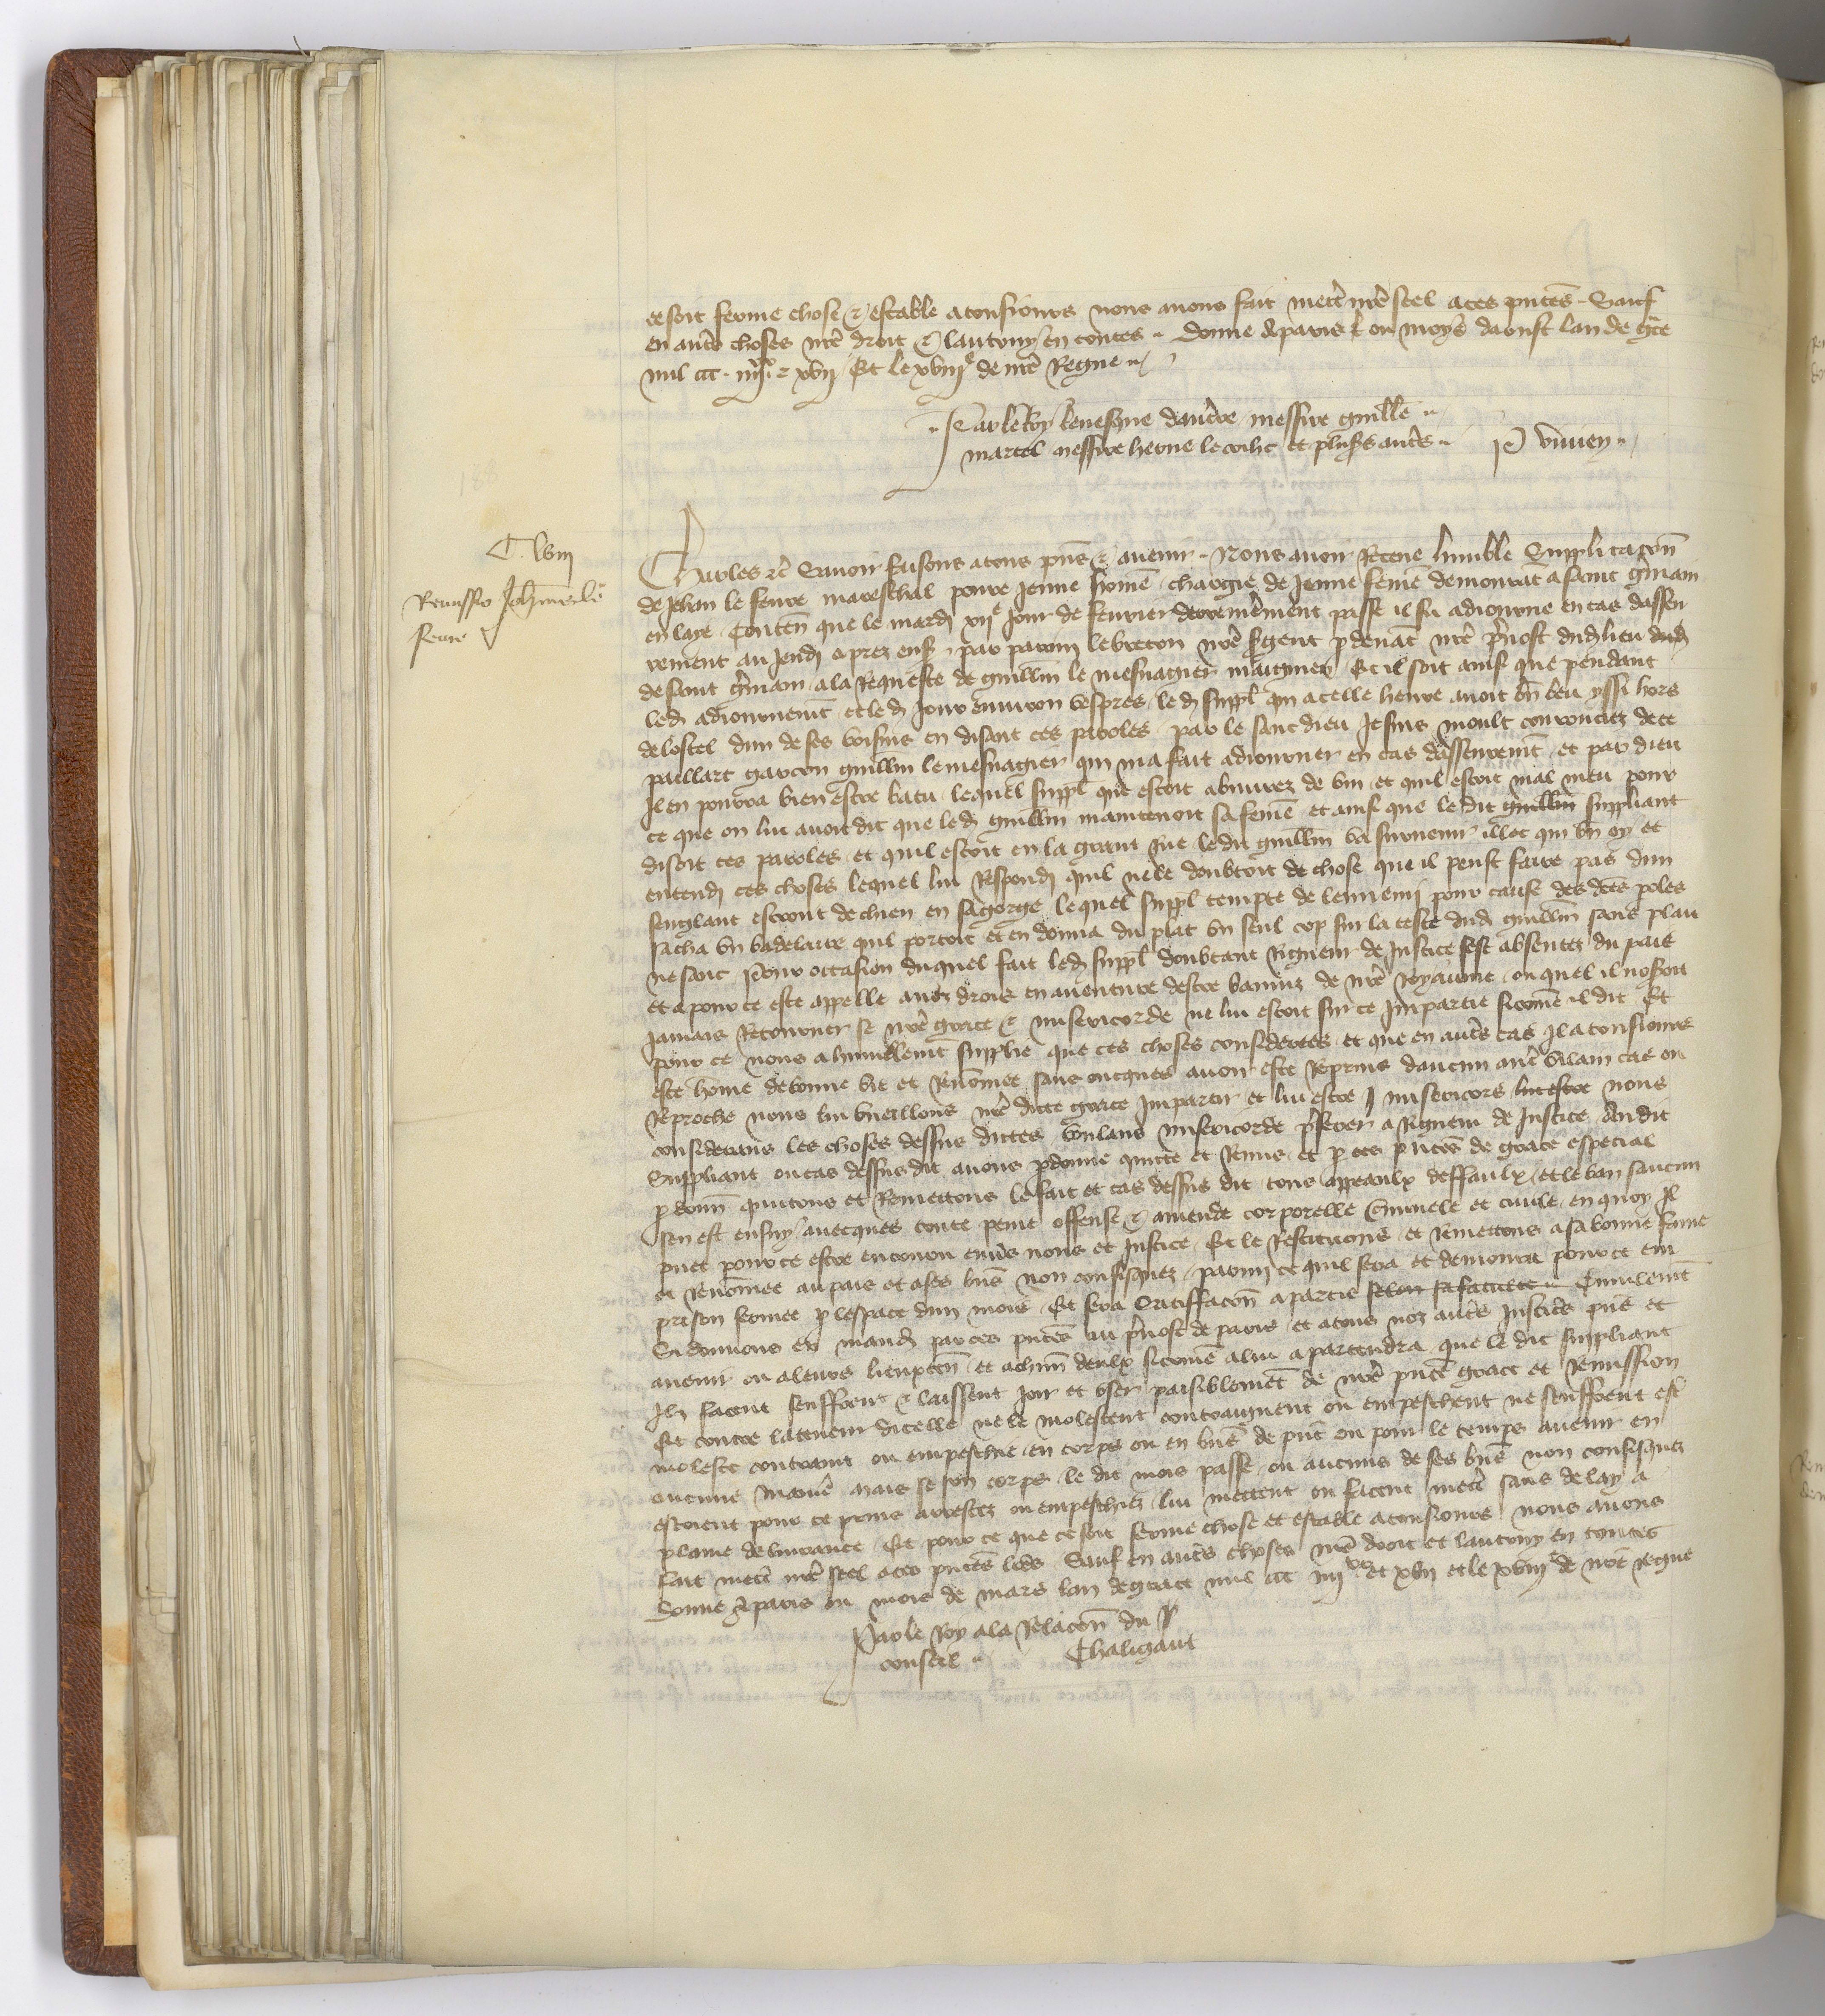 ce soit ferme chose & estable a tousiours nous avons fait mettre nre scel a ces pntes Sauf
en autres choses nre droit & lautruy en toutes Donne a paris ou moys daoust lan de gce
mil ccc iiijxx & xvij Et le xviije de nre Regne
Par le Roy levesque messire guille
martel messire herve le coihc et plusrs autres P vivien
C lviij
Remissio Johannis le
fevre
Charles etc Savoir faisons a tous pns & avenir Nous avoir Receue humble Supplicacon
de Jehan le fevre mareschal povre jeune homme chargie de jeune femme demourant a saint gmain
en laye Contenant que le mardi xije jour de fevrier derrenierement passe il fu adiourne en cas dasseu
rement au jeudi apres ens par perrin le breton nre sergent pdevant nre prevost dud lieu dud
de saint gmain a la Requeste de guillin le mesnagier Et il soit ainsi que pendant
led adiournement et led jour environ vespres led suppl qui a celle heure avoit bn beu yssi hors
de lostel dun de ses voisins en disant ces paroles par le sanc dieu Je suis moult courouciez de ce
paillart garcon guillin le mesnagier qui ma fait adiourner en cas dasseurement et par dieu
Il en pourra bien estre batu lequel suppl que estoit abuvrez de vin et quil estoit mal meu pour
ce que on lui avoit dit que led guillin maintenoit sa femme et ainsi que le dit guillin suppliant
disoit ces paroles et quil estoit en la grant rue le dit guillin va survenir illec qui bn oy et
entendi ces choses lequel lui Respondi quil ne le doubtoit de chose que il peust faire pas dun
senglant estront de chien en sa gorge lequel suppl tempte de lennemi pour cause des dces poles
sacha un badelaire quil portoit et en donna du plat un seul cop sur la teste dud guillin sans plaie
ne sanc Pour occasion duquel fait led suppl doubtant Rigueur de Justice sest absentez du pais
et a pour ce este appelle a noz drois en aventure destre banniz de nre Royaume ou quel il noseroit
jamais Retourner se nre grace & misericorde ne lui estoit sur ce Impartie sicomme il dit Et
pour ce nous a humblement supplie que ces choses considerees et que en autres cas Il a tousiours
este homme de bonne vie et Renommee sans oncques avoir este Reprins daucun autre vilain cas ou
Reproche nous lui vueillons nre dicte grace Impartir et lui estre misericors lui estre nous
considerans les choses dessus dictes voulans misericorde preferer a Rigueur de Justice Audit
Suppliant ou cas dessusdit avons pdonne quicte et Remis et p ces pntes de grace especial
pdonn quictons et Remettons le fait et cas dessus dit tous appeaulx deffaulx et le ban saucun
sen est ensuy avecques toute peine offense & amende corporelle criminele et civile en quoy Il
puet pour ce estre encouru envers nous et Justice Et le Restituons et Remettons a sa bonne fame
et Renommee au pais et a ses biens non confisquez parmi ce quil sera et demourra pour ce en
prison fermee p lespace dun mois Et fera Satisffacon a partie selon sa faculte Civilement
Si donnons en mandt par ces pntes au prevost de paris et a tous noz autres Justiciers pns et
avenir ou a leurs lieuxten et a chun deulx sicomme a lui apartendra que le dit suppliant
Ilz facent seuffrent & laissent joir et user paisiblement de nre pnte grace et Remission
Et contre la teneur dicelle ne le molestent contraignent ou empeschent ne seuffrent estre
moleste contraint ou empeschie en corps ou en biens de pnt ou pour le temps avenir en
aucune maniere mais se son corps le dit mois passe ou aucuns de ses biens non confisquez
estoient pour ce prins arrestez ou empeschiez lui mettent ou facent mettre sans delay a
plaine delivrance Et pour ce que ce soit ferme chose et estable a tousiours nous avons
fait mettre nre scel a ces pntes lres Sauf en autres choses nre droit et lautruy en toutes
Donne a paris ou mois de mars lan de grace mil ccc iiijxx et xvij et le xviije de nre Regne
Par le Roy a la Relacon du
conseil Chaligaut